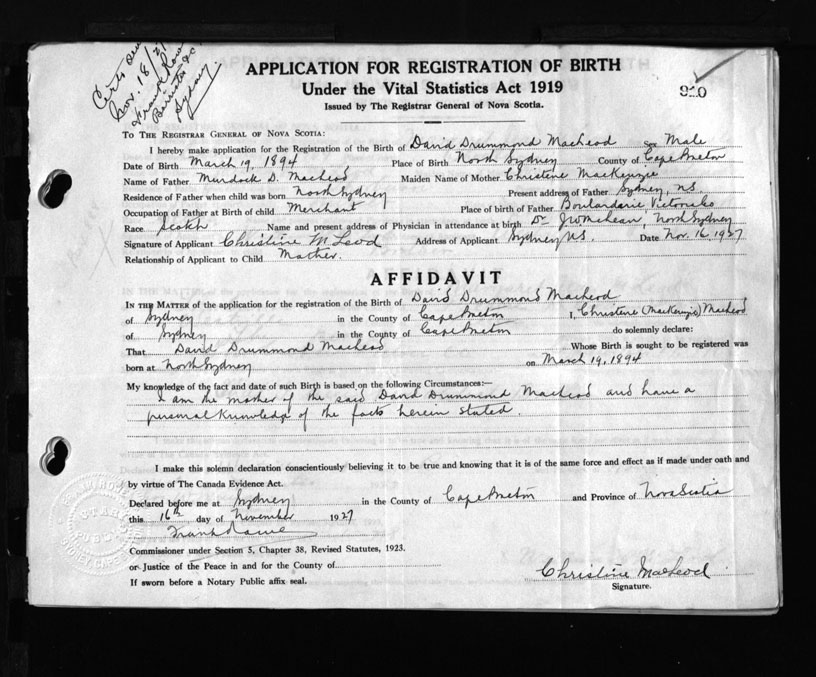 Certs
Nov. 18/27
Frank Rowe
Barrister &c
Sydney
APPLICATION FOR REGISTRATION OF BIRTH
Under the Vital Statistics Act 1919
Issued by The Registrar General of Nova Scotia.
910
TO THE REGISTRAR GENERAL OF NOVA SCOTIA:
I hereby make application for the Registration of the Birth of David Drummond MacLeod Sex Male
Date of Birth March 19, 1894 Place of Birth North Sydney County of Cape Breton
Name of Father Murdock D. MacLeod Maiden Name of Mother Christene MacKenzie
Residence of Father when child was born North Sydney Present address of Father Sydney, N.S.
Occupation of Father at Birth of child Merchant Place of birth of Father Boulardarie Victoria Co
Race Scotch Name and present address of Physician in attendance at birth Dr North Sydney
Signature of Applicant Christine McLeod Address of Applicant Sydney N.S. Date Nov. 16, 1927
Relationship of Applicant to Child Mother.
AFFIDAVIT
IN THE MATTER of the application for the registration of the Birth of David Drummond MacLeod
of Sydney in the County of Cape Breton I, Christene (MacKenzie) MacLeod
of Sydney in the County of Cape Breton do solemnly declare:
That David Drummond MacLeod Whose Birth is sought to be registered was
born at North Sydney on March 19, 1894
My knowledge of the fact and date of such Birth is based on the following Circumstances:—
I am the mother of the said David Drummond MacLeod and have a
personal knowledge of the facts herein stated.
I make this solemn declaration conscientiously believing it to be true and knowing that it is of the same force and effect as if made under oath and
by virtue of The Canada Evidence Act.
Declared before me at Sydney in the County of Cape Breton and Province of Nova Scotia
this 16th day of November 1927
Frank Rowe
Commissioner under Section 5, Chapter 38, Revised Statutes, 1923.
or Justice of the Peace in and for the County of
If sworn before a Notary Public affix seal.
Christine MacLeod
Signature.